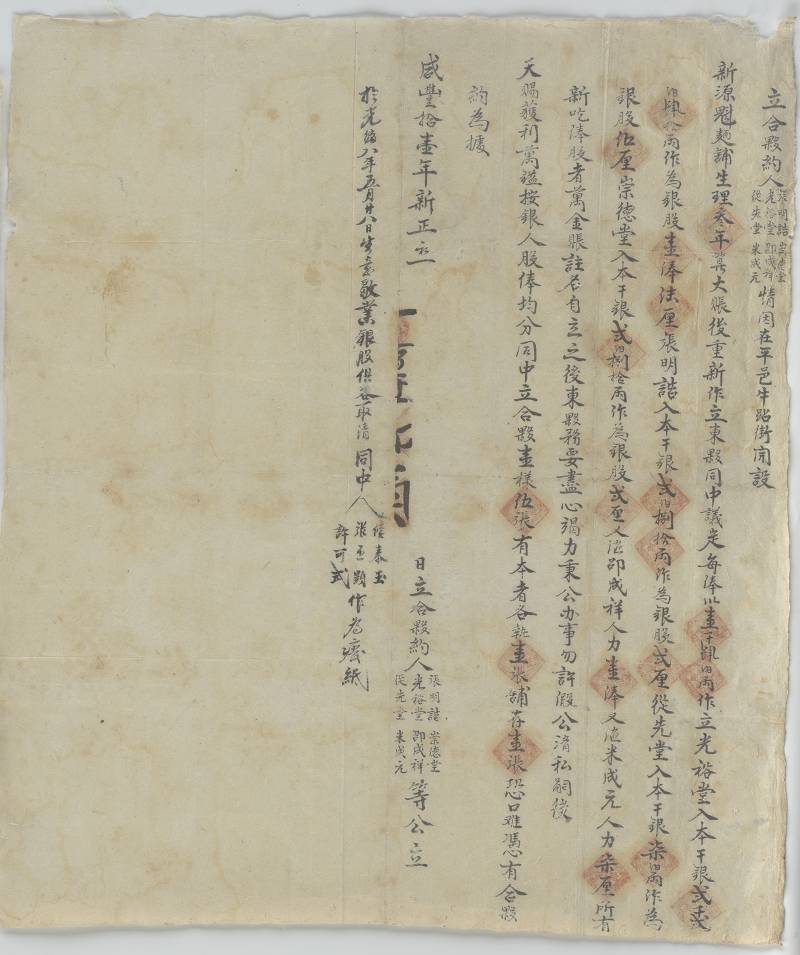 立合夥約人張明誥 光裕堂 從先堂 崇德堂 郭成祥 米成元情因在平邑牛站街開設
新源魁麵舖生理叁年算大賬後重新作立東夥同中議定每俸以壹千肆百兩作立光裕堂入本干銀弍千弍
百肆拾兩作為銀股壹俸陸厘張明誥入本干銀弍百捌拾兩作為銀股弍厘從先堂入本干銀柒百兩作為
銀股伍厘崇德堂入本干銀弍百捌拾兩作為銀股弍厘又適郭成祥人力壹俸又適米成元人力柒厘所有
新吃俸股者萬金賬註名自立之後東夥務要盡心竭力秉公办事勿許假公濟私嗣後
天賜獲利萬鎰按銀人股俸均分同中立合夥壹樣伍張有本者各執壹張舖存壹張恐口难憑有合夥
約為據
咸豐拾壹年新正元日立合夥約人張明誥 光裕堂 從先堂 崇德堂 郭成祥 米成元等公立
於光緒八年五月廿八日生意歇業銀股俱各取清同中人 泰玉 許可式作為廢紙